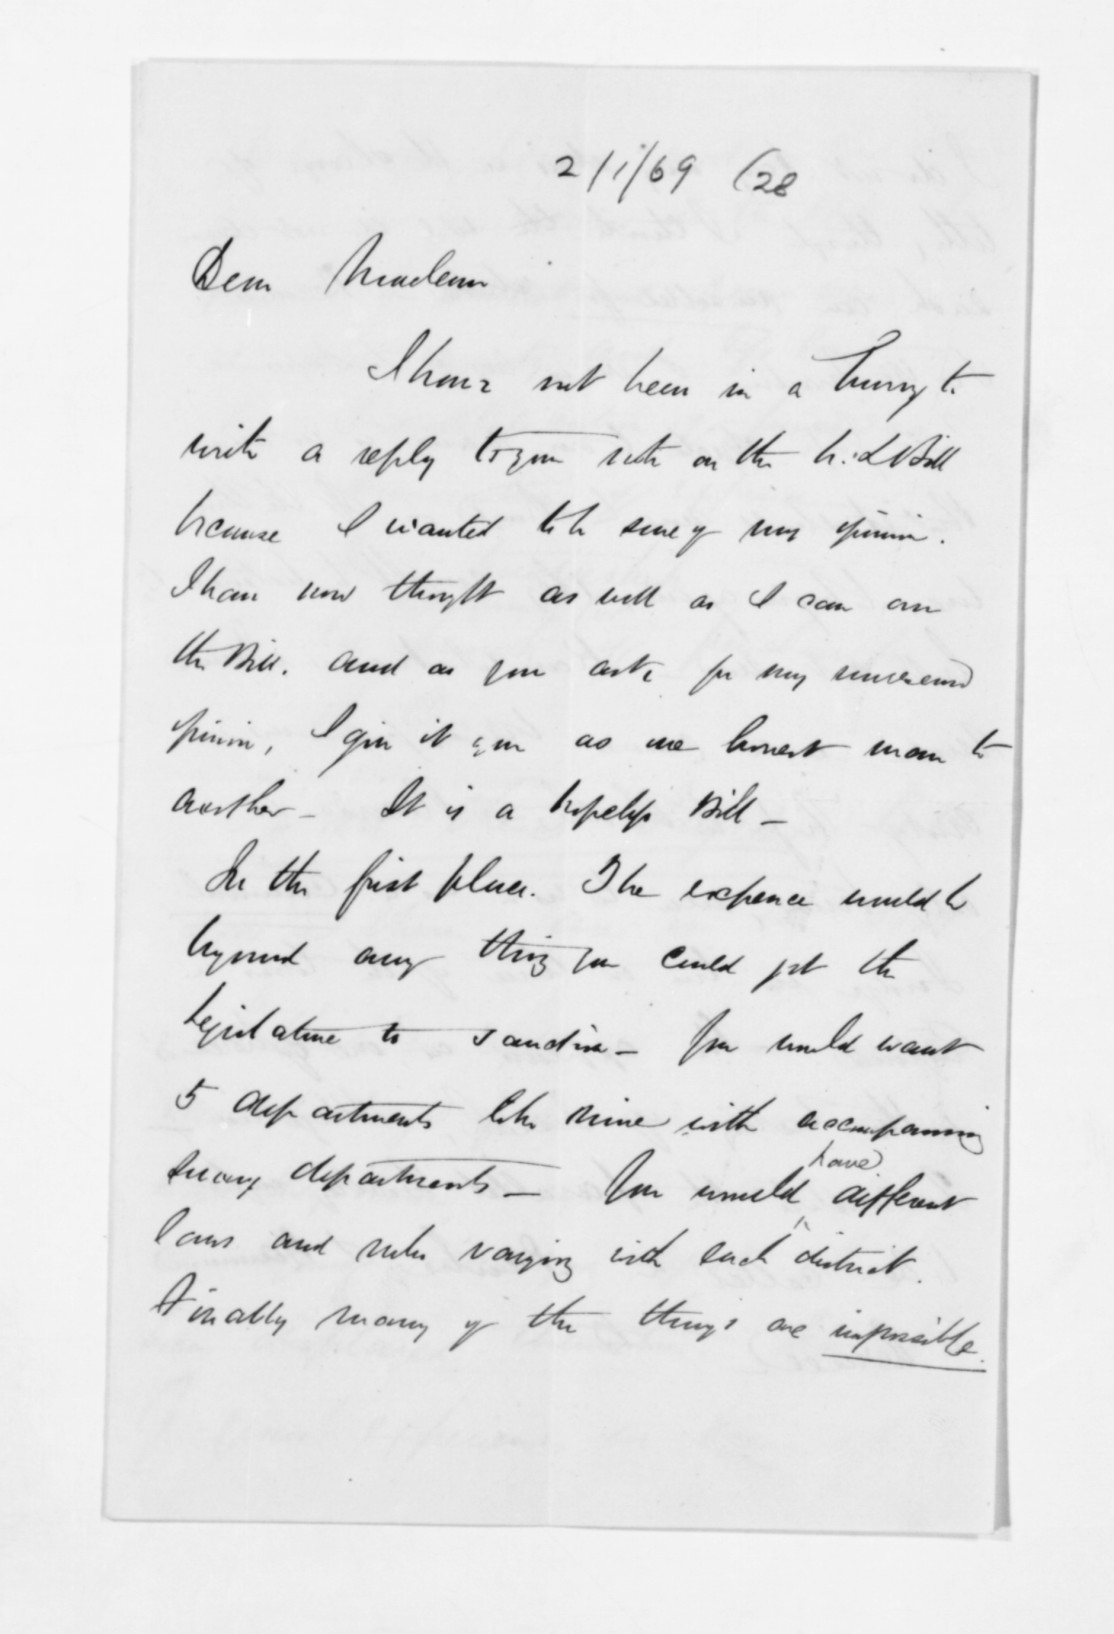 2/1/69 (28
Dear Maclean
I have not been in a hurry to
write a reply to your note on the N. L Bill
because I wanted to be sure of my opinion.
I have now thought as well as I can over
the Bill. and as you ask for my unreserved
opinion, I give it you as one honest man to
another - It is a hopeless Bill -
In the first place. The expence would be
beyond any thing you could get the
Legislature to sanction - You would want
5 departments like mine with accompanying
Survey departments - You would have different
laws and rules varying with each district.
Finally many of the things are impossible.